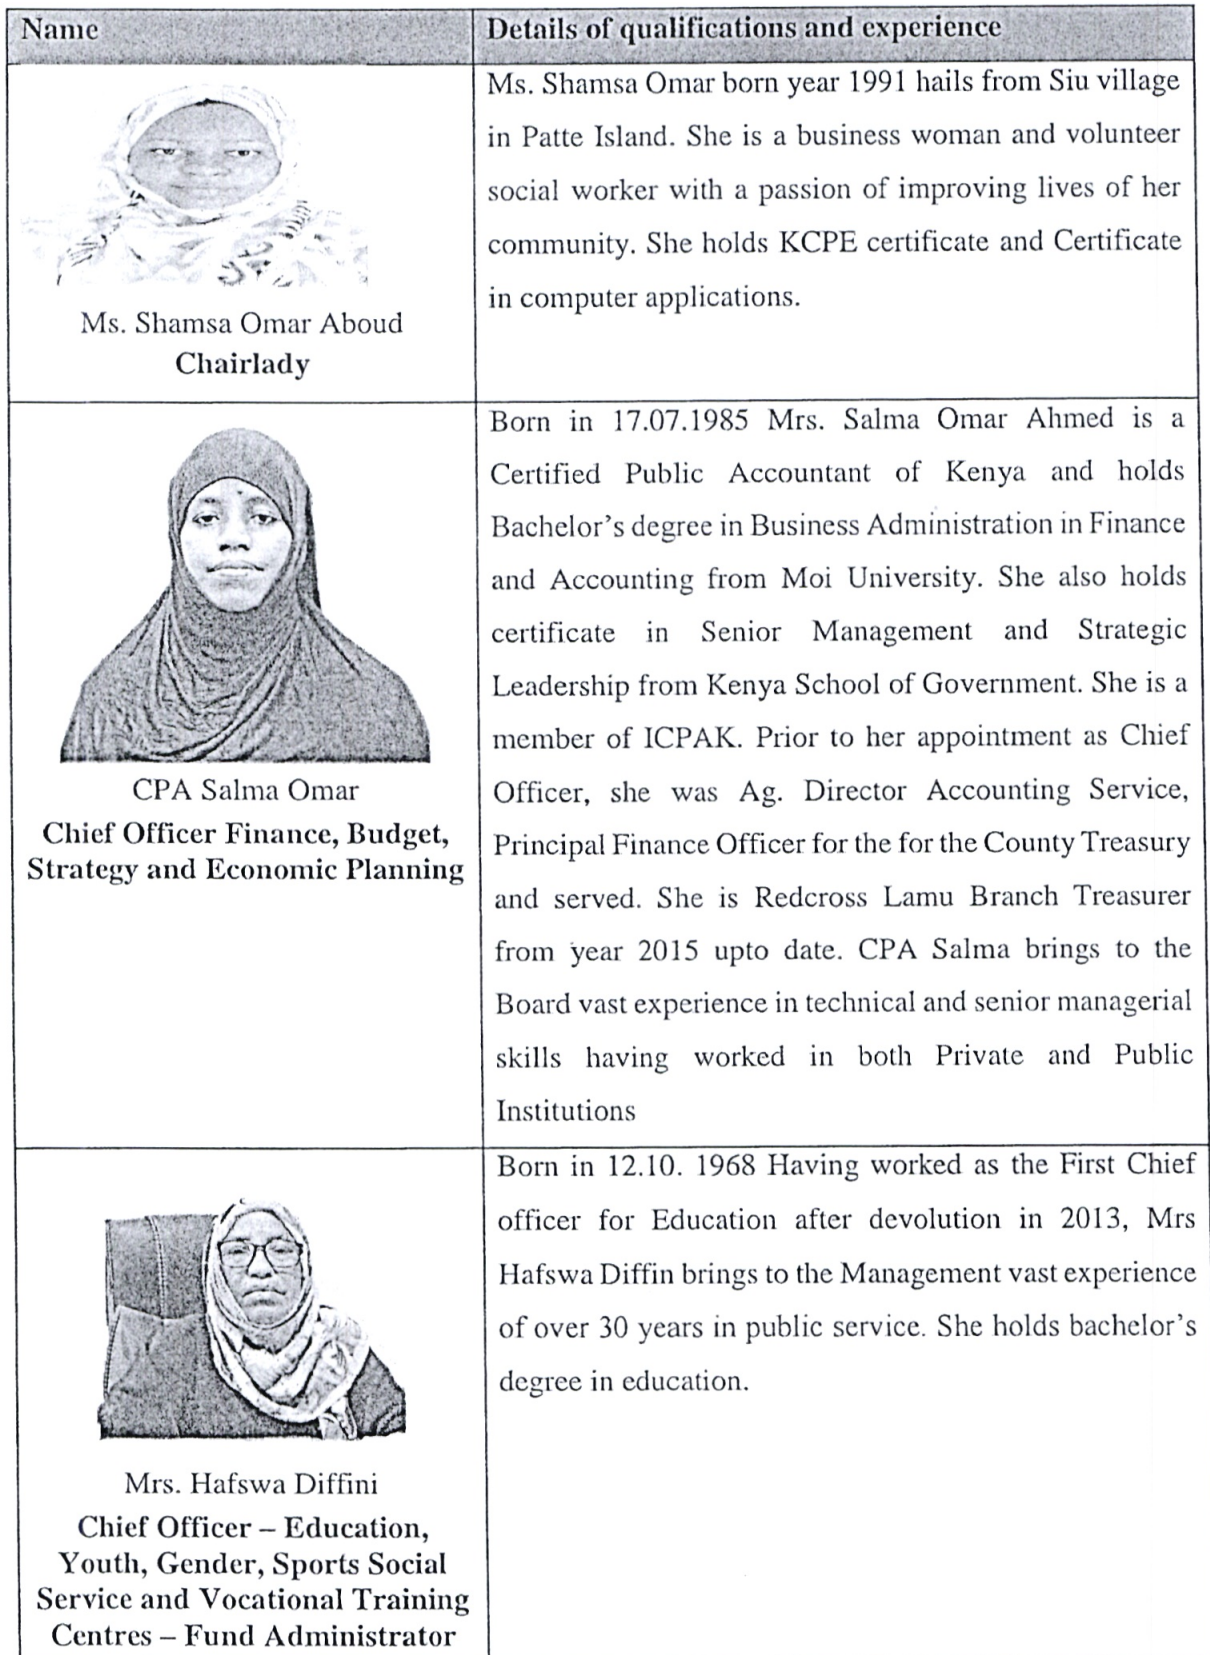 Name
Details of qualifications and experience
Ms. Shamsa Omar Aboud
Chairlady
Ms. Shamsa Omar born year 1991 hails from Siu village
in Patte Island. She is a business woman and volunteer
social worker with a passion of improving lives of her
community. She holds KCPE certificate and Certificate
in computer applications.
CPA Salma Omar
Chief Officer Finance, Budget,
Strategy and Economic Planning
Born in 17.07.1985 Mrs. Salma Omar Ahmed is a
Certified Public Accountant of Kenya and holds
Bachelor's degree in Business Administration in Finance
and Accounting from Moi University. She also holds
certificate in Senior Management and Strategic
Leadership from Kenya School of Government. She is a
member of ICPAK. Prior to her appointment as Chief
Officer, she was Ag. Director Accounting Service,
Principal Finance Officer for the for the County Treasury
and served. She is Redcross Lamu Branch Treasurer
from year 2015 upto date. CPA Salma brings to the
Board vast experience in technical and senior managerial
skills having worked in both Private and Public
Institutions
Mrs. Hafswa Diffini
Chief Officer – Education,
Youth, Gender, Sports Social
Service and Vocational Training
Centres – Fund Administrator
Born in 12.10. 1968 Having worked as the First Chief
officer for Education after devolution in 2013, Mrs
Hafswa Diffin brings to the Management vast experience
of over 30 years in public service. She holds bachelor's
degree in education.